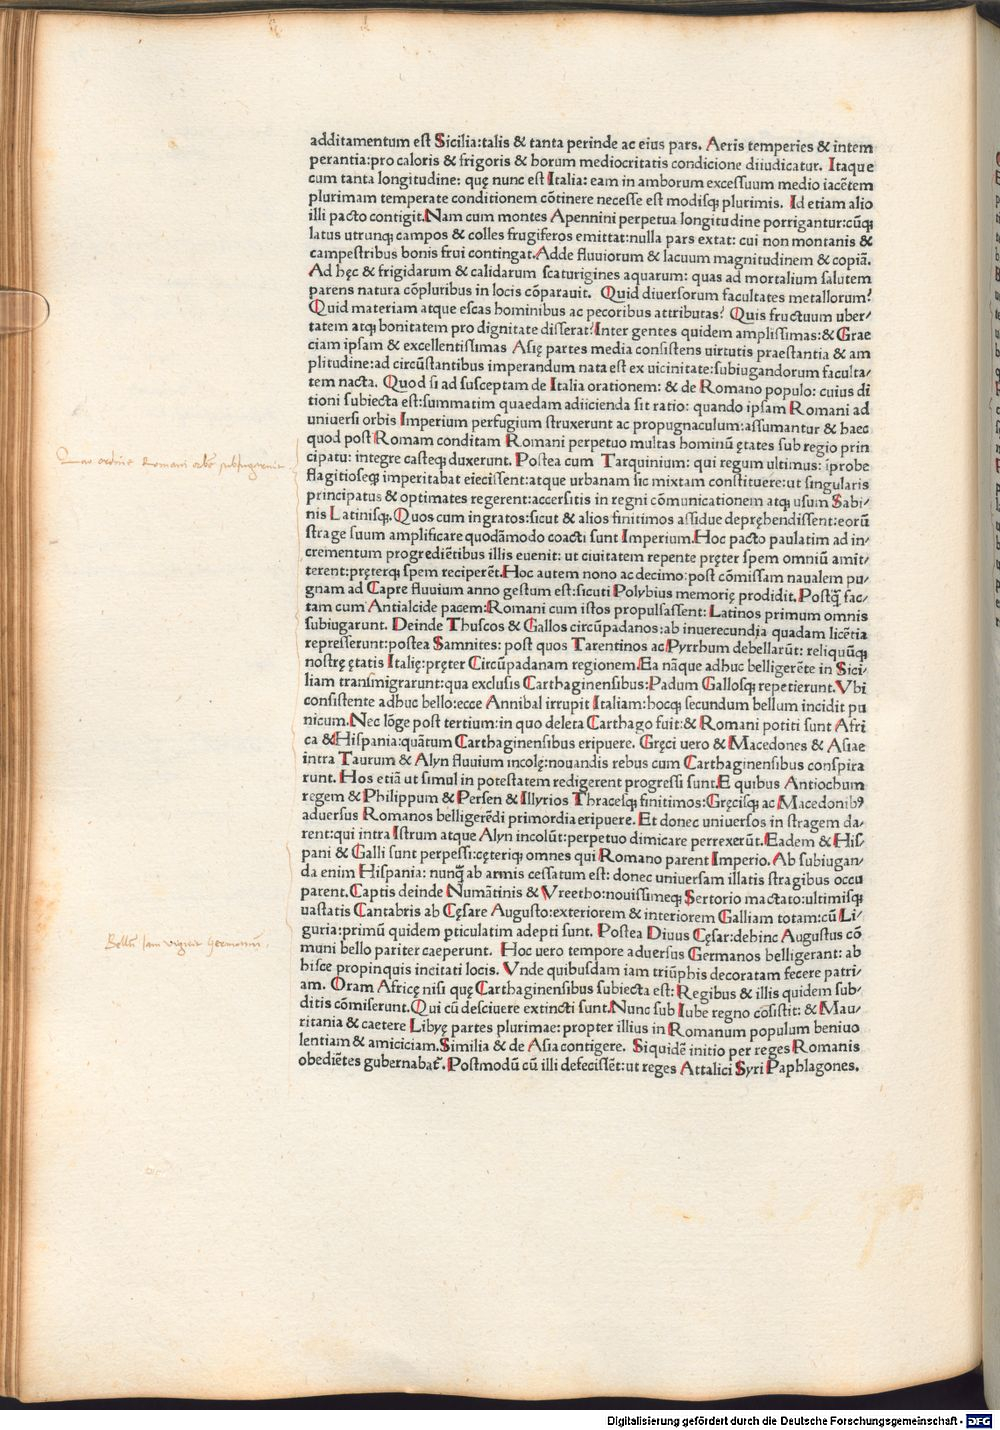 additamentum eſt Sicilia:talis & tanta perinde ac eius pars. Aeris temperies & intem
perantia:pro caloris & frigoris & horum mediocritatis condicione diiudicatur. Itaque
cum tanta longitudine: quę nunc eſt Italia: eam in amborum exceſſuum medio iacētem
plurimam temperate conditionem cōtinere neceſſe eſt modiſqꝫ plurimis. Id etiam alio
illi pacto contigit.Nam cum montes Apennini perpetua longitudine porrigantur:cūqꝫ
latus utrunqꝫ campos & colles frugiferos emittat:nulla pars extat: cui non montanis &
campeſtribus bonis frui contingat.Adde fluuiorum & lacuum magnitudinem & copiā.
Ad hęc & frigidarum & calidarum ſcaturigines aquarum: quas ad mortalium ſalutem
parens natura cōpluribus in locis cōparauit. Quid diuerſorum facultates metallorum?
Quid materiam atque eſcas hominibus ac pecoribus attributas? Quis fructuum uber/
tatem atqꝫ bonitatem pro dignitate diſſerat?Inter gentes quidem ampliſſimas:& Grae
ciam ipſam & excellentiſſimas Aſię partes media conſiſtens uirtutis praeſtantia & am
plitudine:ad circūſtantibus imperandum nata eſt ex uicinitate:ſubiugandorum faculta/
tem nacta. Quod ſi ad ſuſceptam de Italia orationem: & de Romano populo: cuius di
tioni ſubiecta eſt:ſummatim quaedam adiicienda ſit ratio: quando ipſam Romani ad
uniuerſi orbis Imperium perfugium ſtruxerunt ac propugnaculum:aſſumantur & haec
quod poſt Romam conditam Romani perpetuo multas hominū ętates ſub regio prin
cipatu: integre caſteqꝫ duxerunt. Poſtea cum Tarquinium: qui regum ultimus: iprobe
flagitioſeqꝫ imperitabat eieciſſent:atque urbanam ſic mixtam conſtituere:ut ſingularis
principatus & optimates regerent:accerſitis in regni cōmunicationem atqꝫ uſum Sabi/
nis Latiniſqꝫ.Quos cum ingratos:ſicut & alios finitimos aſſidue depręhendiſſent:eorū
ſtrage ſuum amplificare quodāmodo coacti ſunt Imperium.Hoc pacto paulatim ad in/
crementum progrediētibus illis euenit: ut ciuitatem repente pręter ſpem omniū amit/
terent:pręterqꝫ ſpem reciperēt.Hoc autem nono ac decimo:poſt cōmiſſam naualem pu/
gnam ad Capre fluuium anno geſtum eſt:ſicuti Polybius memorię prodidit.Poſtq̄ fac/
tam cum Antialcide pacem:Romani cum iſtos propulſaſſent: Latinos primum omnis
ſubiugarunt. Deinde Thuſcos & Gallos circūpadanos:ab inuerecundia quadam licētia
repreſſerunt:poſtea Samnites: poſt quos Tarentinos ac Pyrrhum debellarūt: reliquūqꝫ
noſtrę ętatis Italię:pręter Circūpadanam regionem.Ea nāque adhuc belligerēte in Sici/
liam tranſmigrarunt:qua excluſis Carthaginenſibus:Padum Galloſqꝫ repetierunt.Vbi
conſiſtente adhuc bello:ecce Annibal irrupit Italiam: hocqꝫ ſecundum bellum incidit pu
nicum.Nec lōge poſt tertium:in quo deleta Carthago fuit:& Romani potiti ſunt Afri
ca &Hiſpania:quātum Carthaginenſibus eripuere. Gręci uero & Macedones & Aſiae
intra Taurum & Alyn fluuium incolę:nouandis rebus cum Carthaginenſibus conſpira
runt. Hos etiā ut ſimul in poteſtatem redigerent progreſſi ſunt.E quibus Antiochum
regem & Philippum & Perſen & Illyrios Thraceſqꝫ finitimos:Gręciſqꝫ ac Macedonibꝰ
aduerſus Romanos belligerēdi primordia eripuere. Et donec uniuerſos in ſtragem da/
rent:qui intra Iſtrum atque Alyn incolūt:perpetuo dimicare perrexerūt.Eadem & Hiſ/
pani & Galli ſunt perpeſſi:cęteriqꝫ omnes qui Romano parent Imperio. Ab ſubiugan/
da enim Hiſpania: nunq̄ ab armis ceſſatum eſt: donec uniuerſam illatis ſtragibus occu
parent.Captis deinde Numātinis & Vreetho:nouiſſimeqꝫ Sertorio mactato:ultimiſqꝫ
uaſtatis Cantabris ab Cęſare Auguſto:exteriorem & interiorem Galliam totam:cū Li/
guria:primū quidem ꝑticulatim adepti ſunt. Poſtea Diuus Cęſar:debinc Auguſtus cō
muni bello pariter caeperunt. Hoc uero tempore aduerſus Germanos belligerant: ab
hiſce propinquis incitati locis. Vnde quibuſdam iam triūphis decoratam fecere patri/
am. Oram Africę niſi quę Carthaginenſibus ſubiecta eſt: Regibus & illis quidem ſub/
ditis cōmiſerunt.Qui cū deſciuere extincti ſunt.Nunc ſub Iube regno cōſiſtit: & Mau/
ritania & caetere Libyę partes plurimae: propter illius in Romanum populum beniuo
lentiam & amiciciam.Similia & de Aſia contigere. Siquidē initio per reges Romanis
obediētes gubernabat᷑. Poſtmodū cū illi defeciſſēt:ut reges Attalici Syri Paphlagones.
Quo ordine Romani orbē subiugarunt
Bellū iam vigēt Germanū.
Digitalisierung gefördert durch die Deutsche Forschungsgemeinschaft - DFG